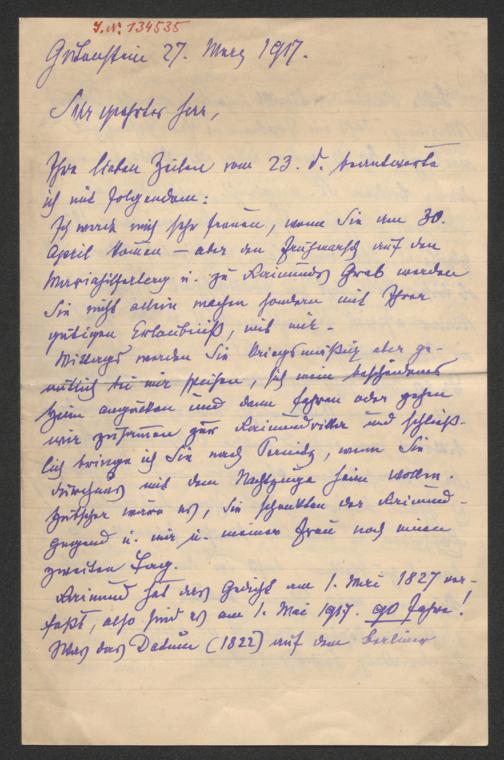 I.N. 134535
Gutenstein 27. März 1917.
Sehr geehrter Herr,
Ihre lieben Zeilen vom 23. d. beantworte
ich mit Folgendem:
Ich werde mich sehr freuen, wenn Sie am 30.
April kommen – aber den Frühmarsch auf den
Mariahilferberg u. zu Raimunds Grab werden
Sie nicht allein machen sondern mit Ihrer
gütigen Erlaubniß, mit mir.
Mittags werden Sie kriegsmäßig aber ge-
mütlich bei mir speisen, sich mein bescheidenes
Heim angucken und dann fahren oder gehen
wir zusammen zur Raimundvilla und schließ-
lich bringe ich Sie nach Pernitz, wenn Sie
durchaus mit dem Nachtzuge heim wollen.
Hübscher wäre es, Sie schenkten der Raimund-
gegend u. mir u. meiner Frau noch einen
zweiten Tag.
Raimund hat das Gedicht am 1. Mai 1827 ver-
faßt, also sind es am 1. Mai 1917. 90 Jahre!
Was das Datum (1822) auf dem Berliner